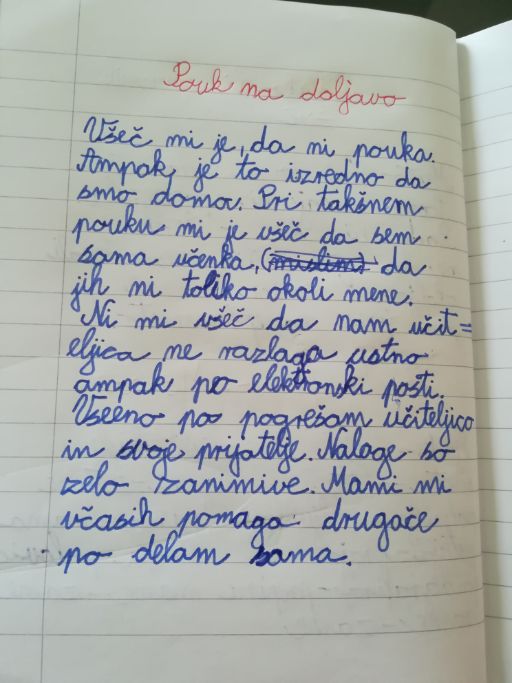 Pouk na doljavo
Všeč mi je, da ni pouka.
Ampak, je to izredno da
smo domov. Pri takšnem
pouku mi je všeč da sem
sama učenka, (mislim) da
jih ni toliko okoli mene.
Ni mi všeč da nam učit=
eljica ne razlaga ustno
ampak po elektronski pošti.
Vseeno pa pogrešam učiteljico
in svoje prijatelje. Naloge so
zelo zanimive. Mami mi
včasih pomaga drugače
po delam sama.